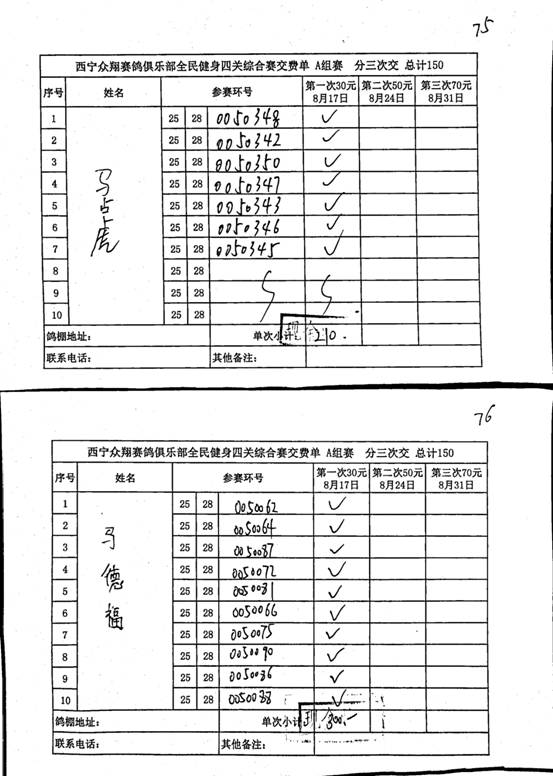 75
西宁众翔赛鸽俱乐部全民健身四关综合赛交费单 A组赛 分三次交 总计150
序号 姓名 参赛环号 第一次30元 8月17日 第二次50元 8月24日 第三次70元 8月31日
马占虎
1 25 28 0050348 ✓
2 25 28 0050342 ✓
3 25 28 0050350 ✓
4 25 28 0050347 ✓
5 25 28 0050343 ✓
6 25 28 0050346 ✓
7 25 28 0050345 ✓
8 25 28
9 25 28
10 25 28
鸽棚地址： 单次小计 210.
联系电话： 其他备注：
76
西宁众翔赛鸽俱乐部全民健身四关综合赛交费单 A组赛 分三次交 总计150
序号 姓名 参赛环号 第一次30元 8月17日 第二次50元 8月24日 第三次70元 8月31日
马德福
1 25 28 0050062 ✓
2 25 28 0050064 ✓
3 25 28 0050087 ✓
4 25 28 0050072 ✓
5 25 28 0050081 ✓
6 25 28 0050066 ✓
7 25 28 0050075 ✓
8 25 28 0050090 ✓
9 25 28 0050086 ✓
10 25 28 0050088 ✓
鸽棚地址： 单次小计 300.-
联系电话： 其他备注：